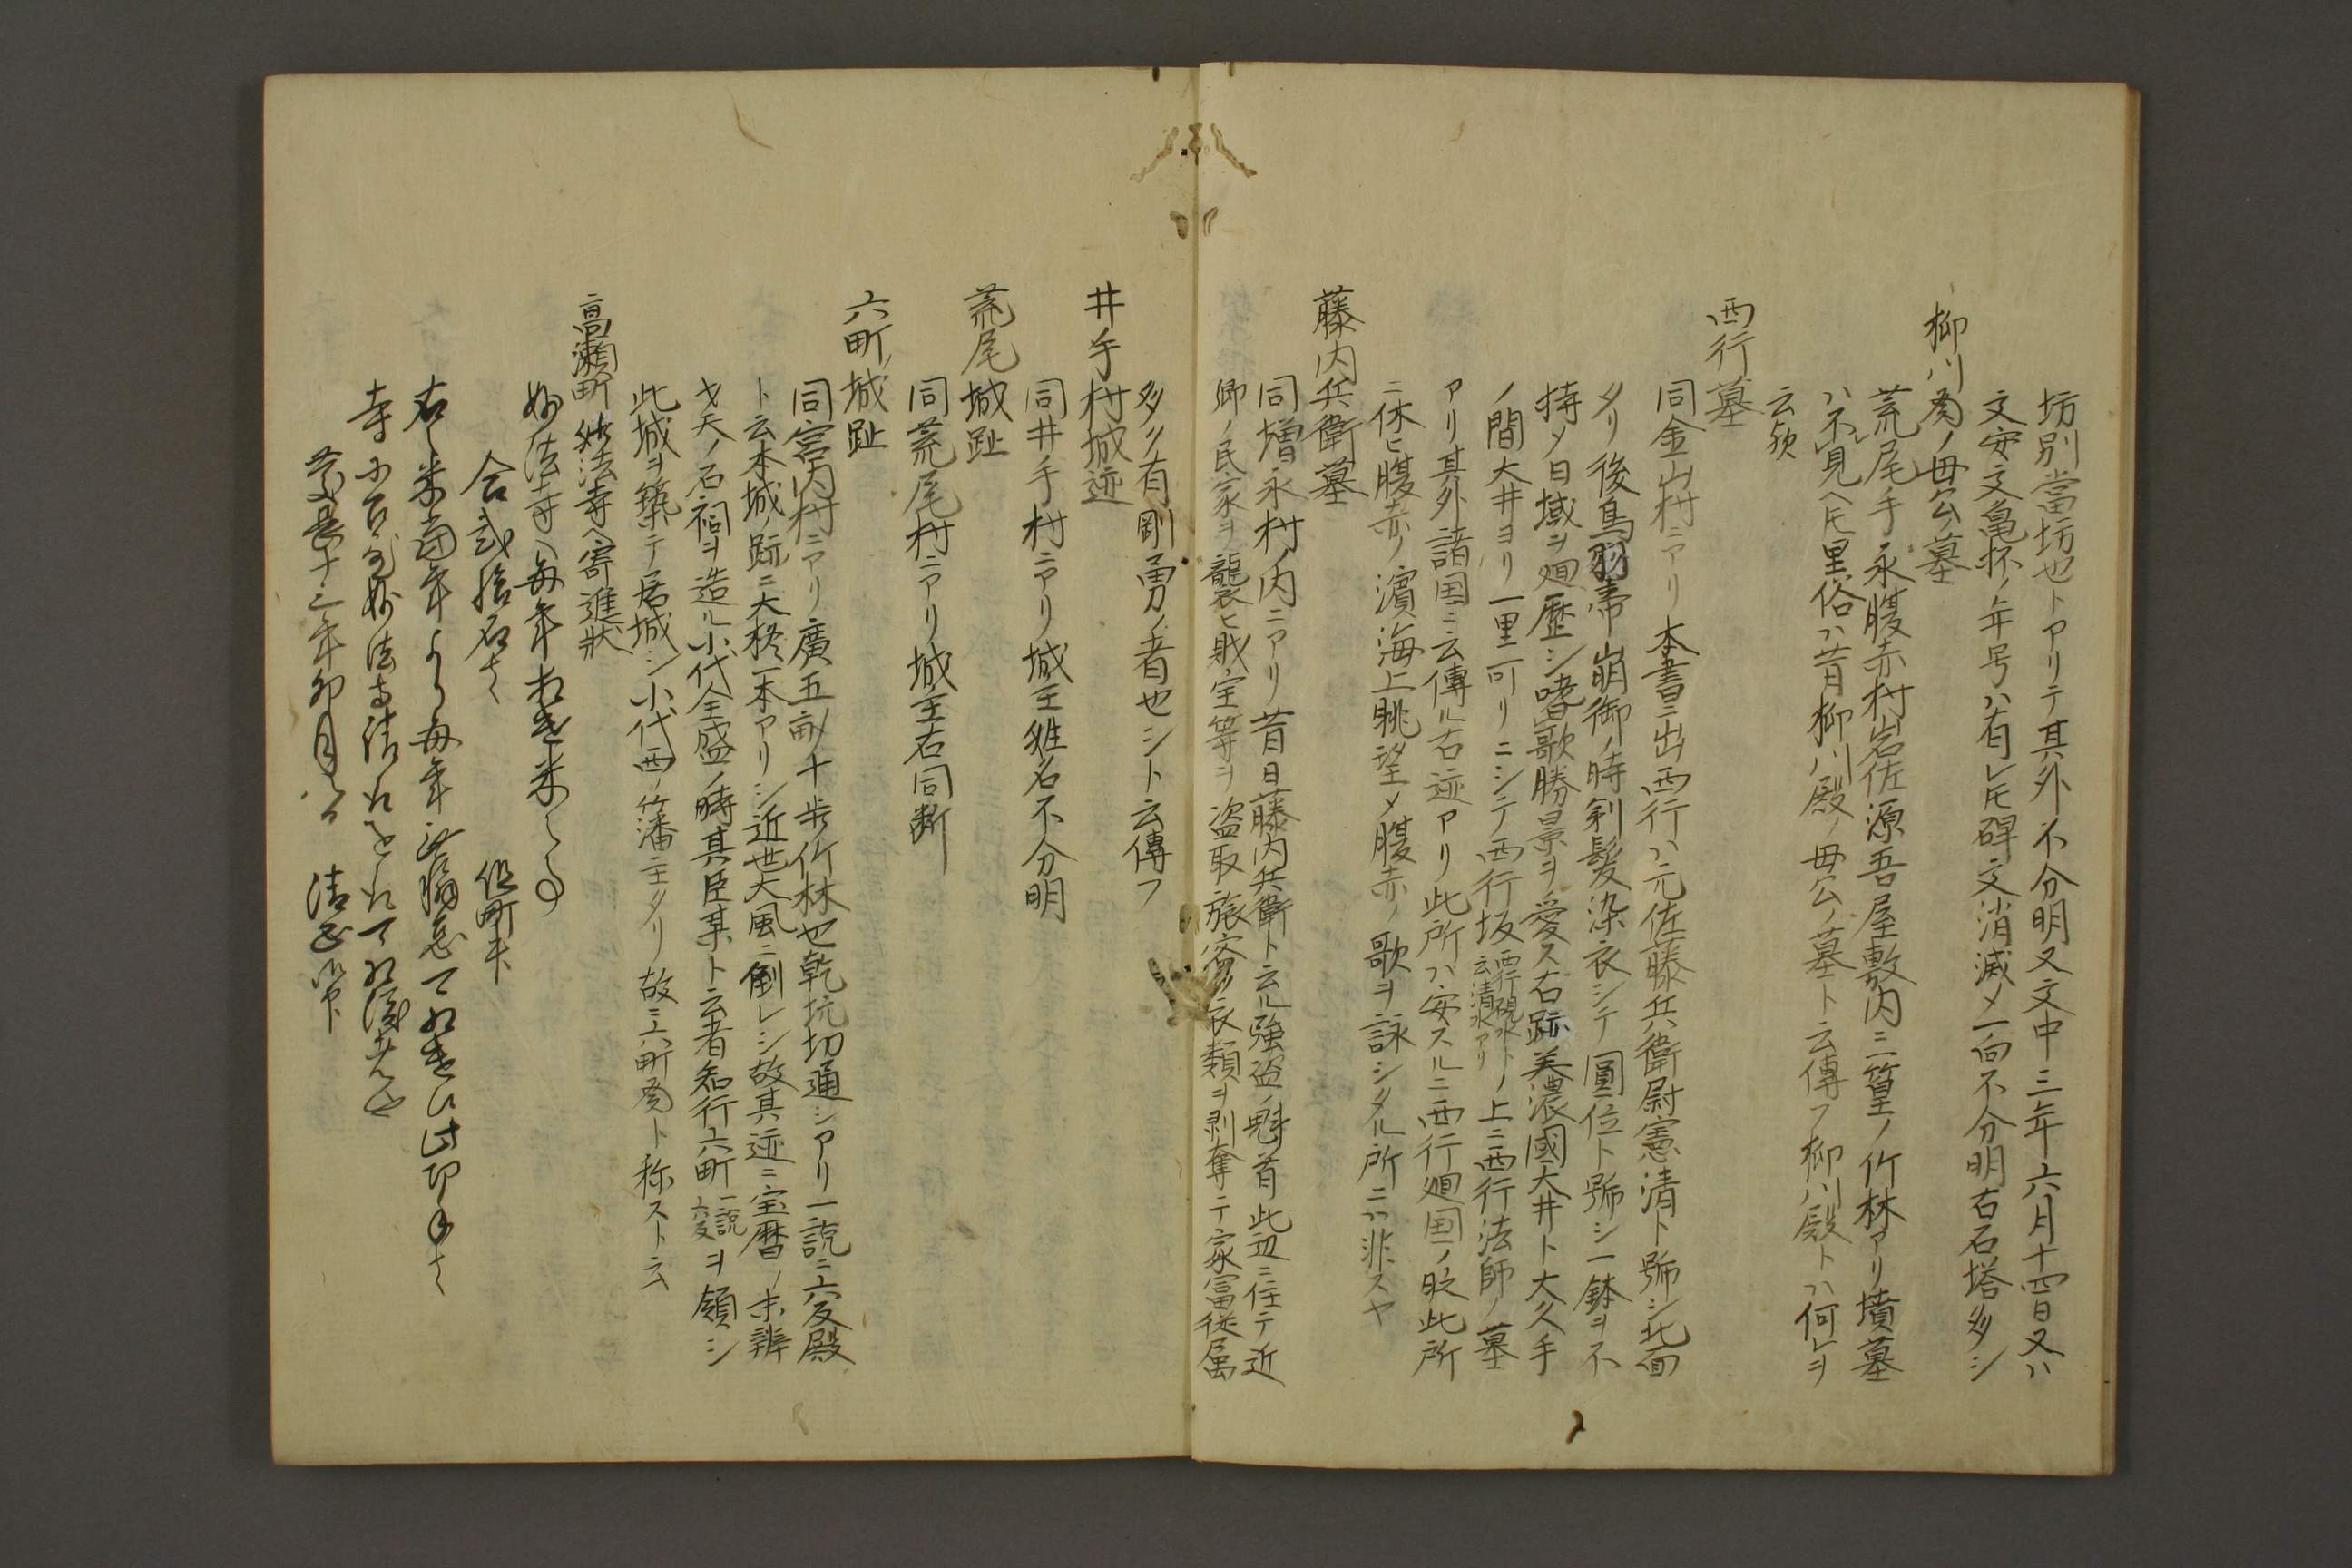 坊別當坊也トアリテ其外不分明又文中三年六月十四日又ハ
文安文亀抔ノ年号ハ有レ𪜈碑文消滅〆一向不分明右石塔多シ
柳川殿ノ母公ノ墓
荒尾手永腹赤村岩佐源吾屋敷内ニ篁ノ竹林アリ墳墓
ハ不見ヘ𪜈里俗ハ昔柳川殿ノ母公ノ墓ト云傳フ柳川殿トハ何レヲ
云欤
西行墓
同金山村ニアリ本書ニ出西行ハ元佐藤兵衛尉憲清ト號シ北面
タリ後鳥羽帝崩御ノ時剃髪染衣シテ圓位ト號シ一鉢ヲ不
持〆日域ヲ廻歴シ嗜歌勝景ヲ愛ス右跡美濃國大井ト大久手
ノ間大井ヨリ一里可リニシテ西行坂西行硯水ト云清水アリノ上ニ西行法師ノ墓
アリ其外諸国ニ云傳ル右迹アリ此所ハ安スルニ西行廻国ノ時此所
ニ休ヒ腹赤ノ濱海上眺望〆腹赤ノ歌ヲ詠シタル所ニハ非スヤ
藤内兵衛墓
同増永村ノ内ニアリ昔日藤内兵衛ト云ル強盗ノ魁首此辺ニ住テ近
郷ノ民家ヲ襲ヒ財宝等ヲ盗取旅客ノ衣類ヲ剥奪テ家冨従属
多ク有剛勇ノ者也シト云傳フ
井手村城迹
同井手村ニアリ城主姓名不分明
荒尾城趾
同荒尾村ニアリ城主右同断
六町ノ城趾
同宮内村ニアリ廣五畝十歩竹林也乾坑切通シアリ一説ニ六反殿
ト云本城ノ跡ニ大柊一本アリシ近世大風ニ倒レシ故其迹ニ宝暦ノ末辨
才天ノ石祠ヲ造ル小代全盛ノ時其臣某ト云者知行六町一説六反ヲ領シ
此城ヲ築テ居城シ小代西ノ藩主タリ故ニ六町殿ト称スト云
高瀬町妙法寺ヘ寄進状
妙法寺へ毎年相渡米之事
合弐拾石者 但町米
右之米當年より毎年無懈怠可相渡候此印
寺
慶長十三年卯月八日 清正御印